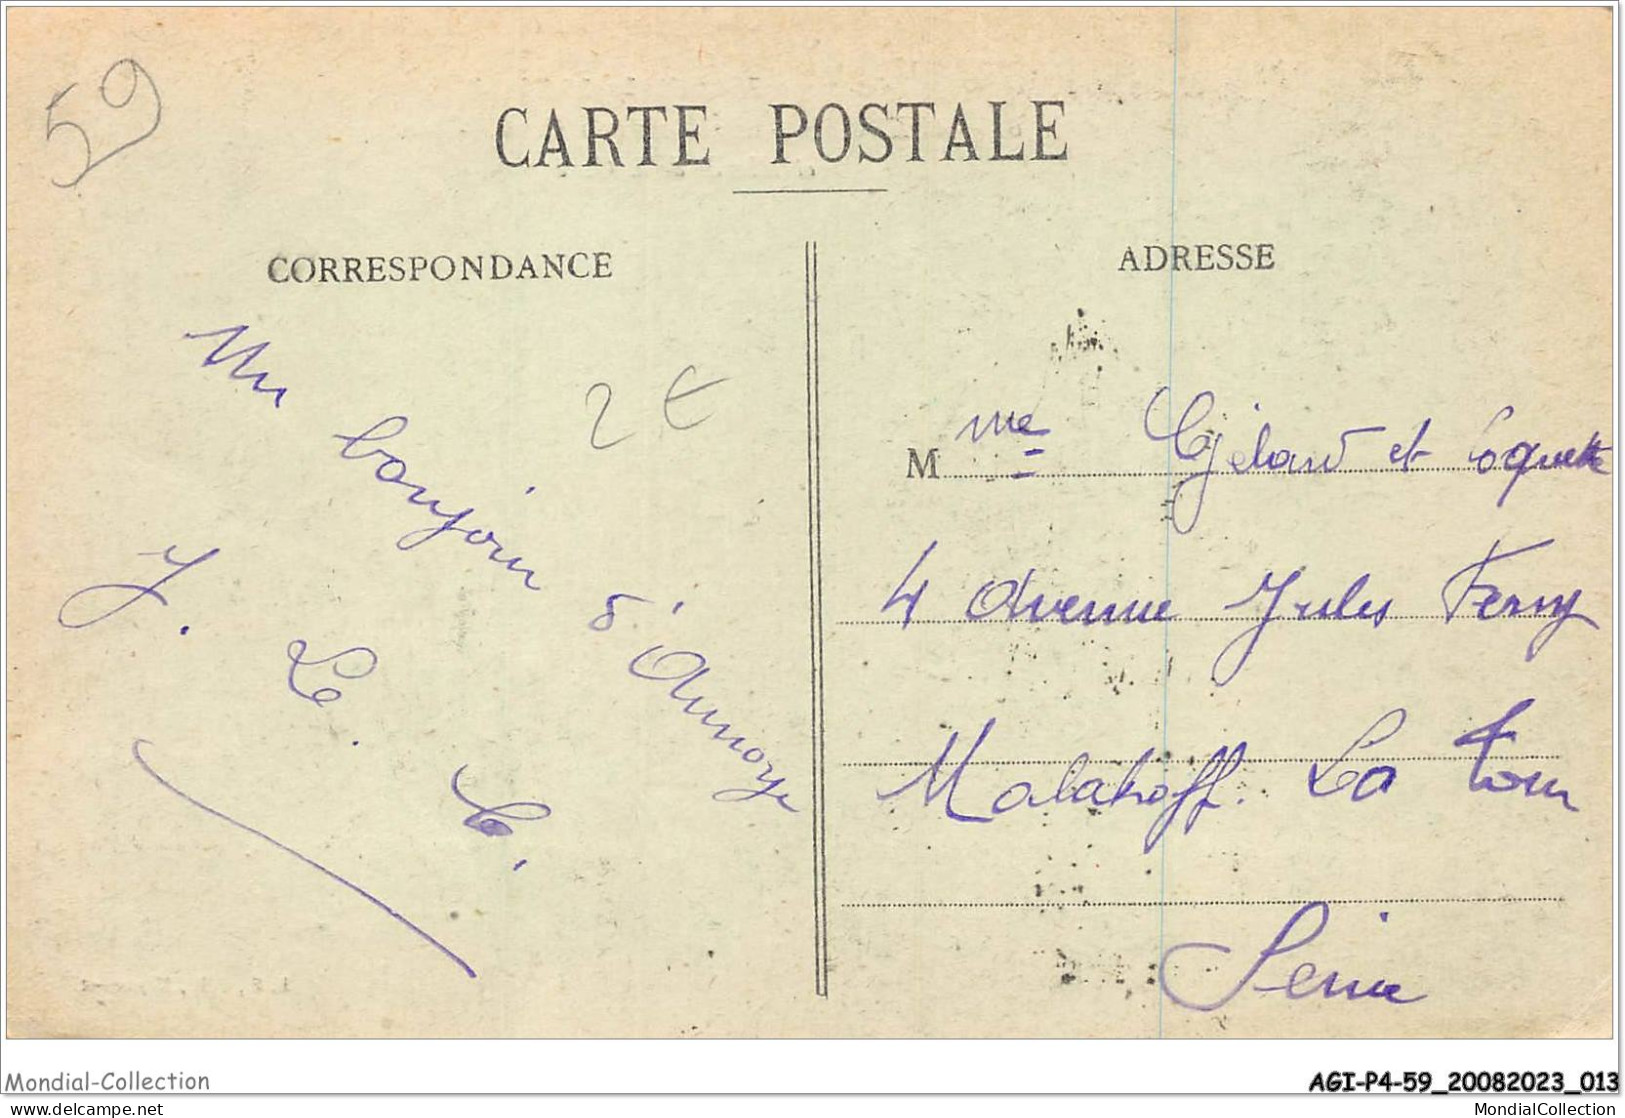 59
CARTE POSTALE
CORRESPONDANCE
ADRESSE
Un bonjour d'Annoye
2 €
J. Le. C.
M me Gélard et Coquette
4 Avenue Jules Ferry
Malakoff. La Tour
Seine
Mondial-Collection
AGI-P4-59_20082023_013
www.delcampe.net
MondialCollection